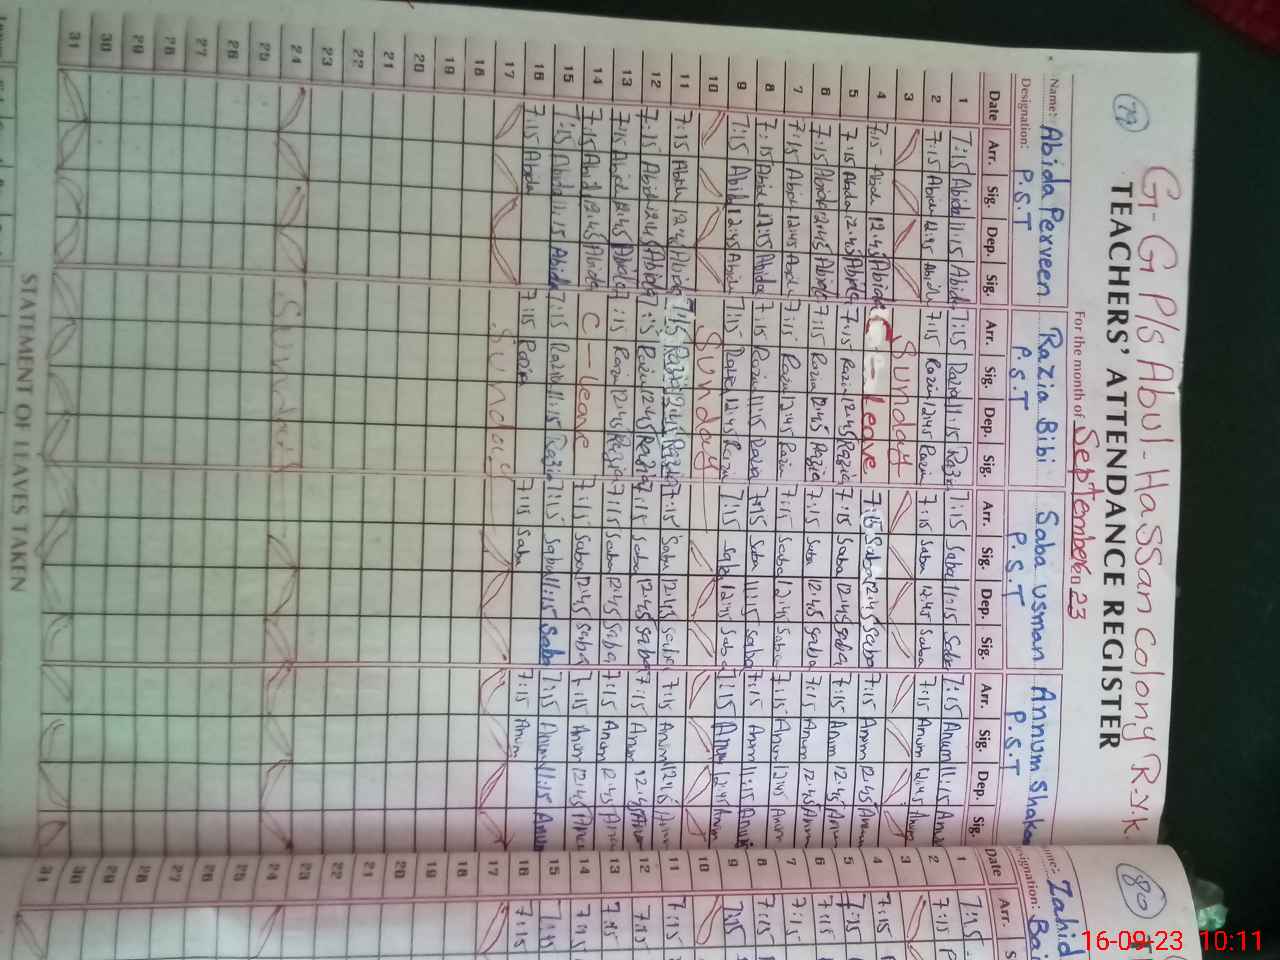 79
G-G P/s Abul-Hassan Colony R.Y.K.
TEACHERS' ATTENDANCE REGISTER
For the month of September 23
Name: Abida Perveen Razia Bibi Saba Usman Annum Shake
Designation: P.S.T P.S.T P.S.T P.S.T
Date Arr. Sig. Dep. Sig. Arr. Sig. Dep. Sig. Arr. Sig. Dep. Sig. Arr. Sig. Dep. Sig.
1 7:15 Abida 11:15 Abida 7:15 Razia 11:15 Razia 7:15 Saba 11:15 Saba 7:15 Anum 11:15 Anum
2 7:15 Abida 12:45 Abida 7:15 Razia 12:45 Razia 7:15 Saba 12:45 Saba 7:15 Anum 12:45 Anum
3 Sunday
4 7:15 Abida 12:45 Abida C-Leave 7:15 Saba 12:45 Saba 7:15 Anum 12:45 Anum
5 7:15 Abida 12:45 Abida 7:15 Razia 12:45 Razia 7:15 Saba 12:45 Saba 7:15 Anum 12:45 Anum
6 7:15 Abida 12:45 Abida 7:15 Razia 12:45 Razia 7:15 Saba 12:45 Saba 7:15 Anum 12:45 Anum
7 7:15 Abida 12:45 Abida 7:15 Razia 12:45 Razia 7:15 Saba 12:45 Saba 7:15 Anum 12:45 Anum
8 7:15 Abida 11:15 Abida 7:15 Razia 11:15 Razia 7:15 Saba 11:15 Saba 7:15 Anum 11:15 Anum
9 7:15 Abida 12:45 Abida 7:15 Razia 12:45 Razia 7:15 Saba 12:45 Saba 7:15 Anum 12:45 Anum
10 Sunday
11 7:15 Abida 12:45 Abida 7:15 Razia 12:45 Razia 7:15 Saba 12:45 Saba 7:15 Anum 12:45 Anum
12 7:15 Abida 12:45 Abida 7:15 Razia 12:45 Razia 7:15 Saba 12:45 Saba 7:15 Anum 12:45 Anum
13 7:15 Abida 12:45 Abida 7:15 Razia 12:45 Razia 7:15 Saba 12:45 Saba 7:15 Anum 12:45 Anum
14 7:15 Abida 12:45 Abida C-leave 7:15 Saba 12:45 Saba 7:15 Anum 12:45 Anum
15 7:15 Abida 11:15 Abida 7:15 Razia 11:15 Razia 7:15 Saba 11:15 Saba 7:15 Anum 11:15 Anum
16 7:15 Abida 7:15 Razia 7:15 Saba 7:15 Anum
17 Sunday
18
19
20
21
22
23
24 Sunday
25
26
27
28
29
30
31
STATEMENT OF LEAVES TAKEN
80
Zahid
Date Arr.
1 7:15
2 7:15
3
4 7:15
5 7:15
6 7:15
7 7:15
8 7:15
9 7:15
10
11 7:15
12 7:15
13 7:15
14 7:15
15 7:15
16 7:15
17
18
19
20
21
22
23
24
25
26
27
28
29
30
31
16-09-23 10:11